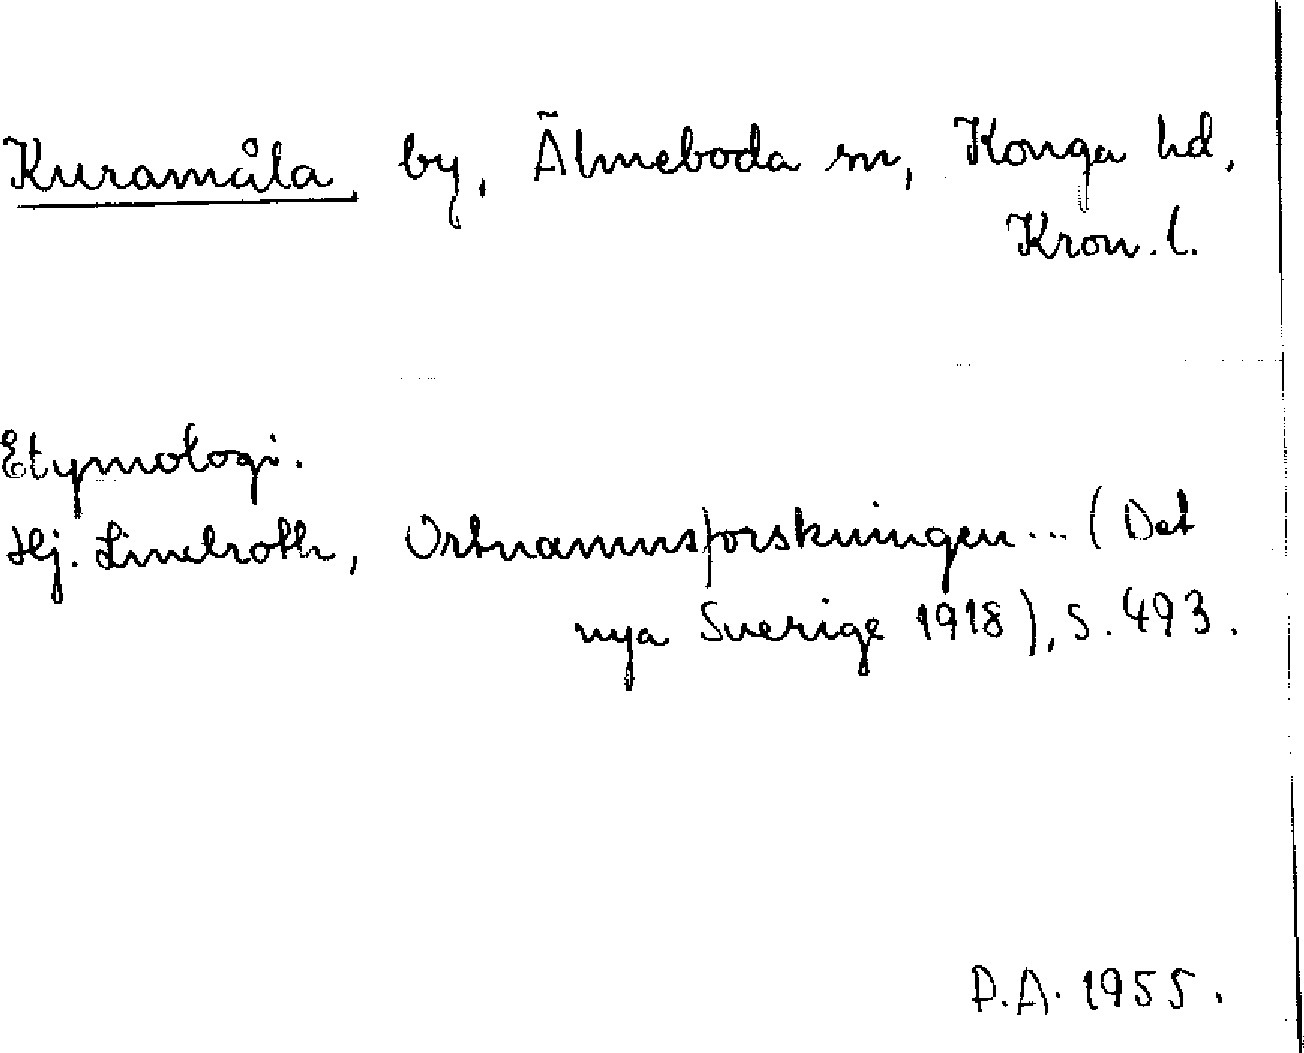 Kuramåla, by, Älmeboda sn, Konga hd,
Kron. l.
Etymologi.
Hj. Lindroth, Ortnamnsforskningen... (Det
nya Sverige 1918), s. 493.
D.A. 1955.